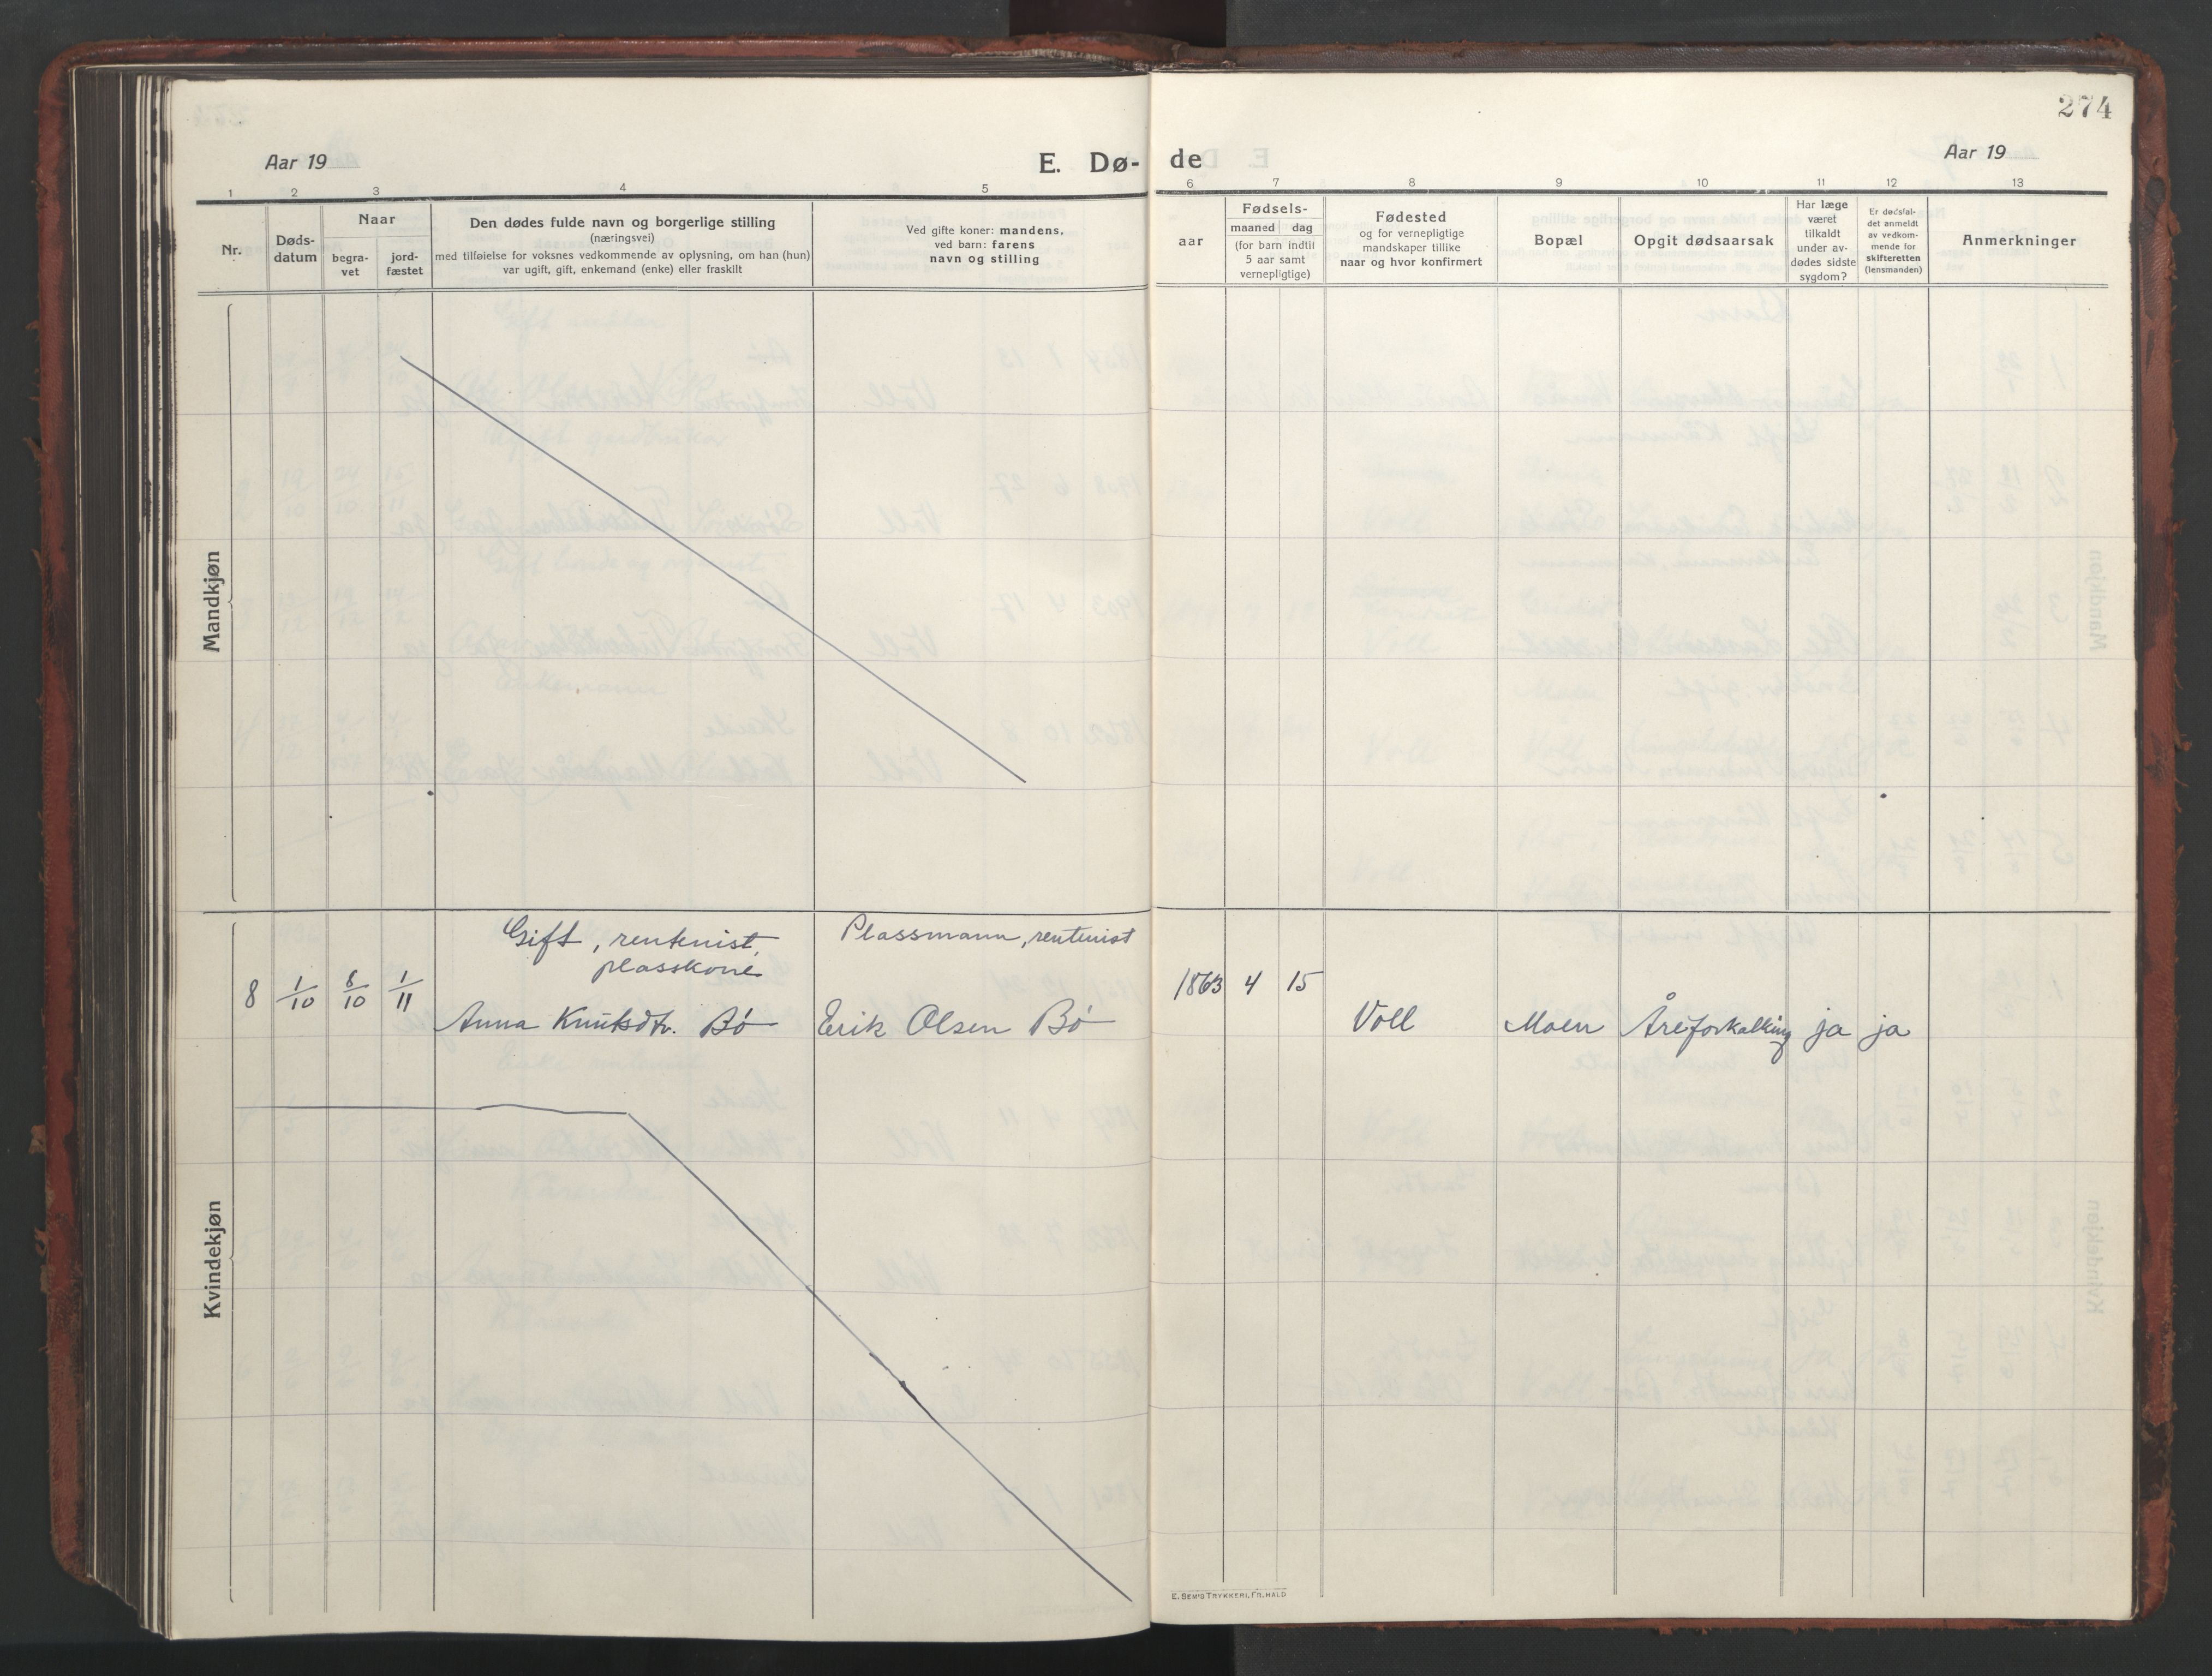 274
Aar 19
E. Dø-
de
Aar 19
1 2 3 4 5 6 7 8 9 10 11 12 13
Nr.
Døds-
datum
Naar
begra-
vet
jord-
fæstet
Den dødes fulde navn og borgerlige stilling
(næringsvei)
med tilføielse for voksnes vedkommende av oplysning, om han (hun)
var ugift, gift, enkemand (enke) eller fraskilt
Ved gifte koner: mandens,
ved barn: farens
navn og stilling
aar
Fødsels-
maaned dag
(for barn indtil
5 aar samt
vernepligtige)
Fødested
og for vernepligtige
mandskaper tillike
naar og hvor konfirmert
Bopæl
Opgit dødsaarsak
Har læge
været
tilkaldt
under av-
dødes sidste
sygdom?
Er dødsfal-
det anmeldt
av vedkom-
mende for
skifteretten
(lensmanden)
Anmerkninger
Mandkjøn
Gift, rentenist, Plassmann, rentenist
plasskone
8 1/10 6/10 1/11 1863 4 15
Anna Knutsdtr. Bö Erik Olsen Bö Voll Moen Åreforkalking ja ja
Kvindekjøn
E. SEM'S TRYKKERI, FR. HALD